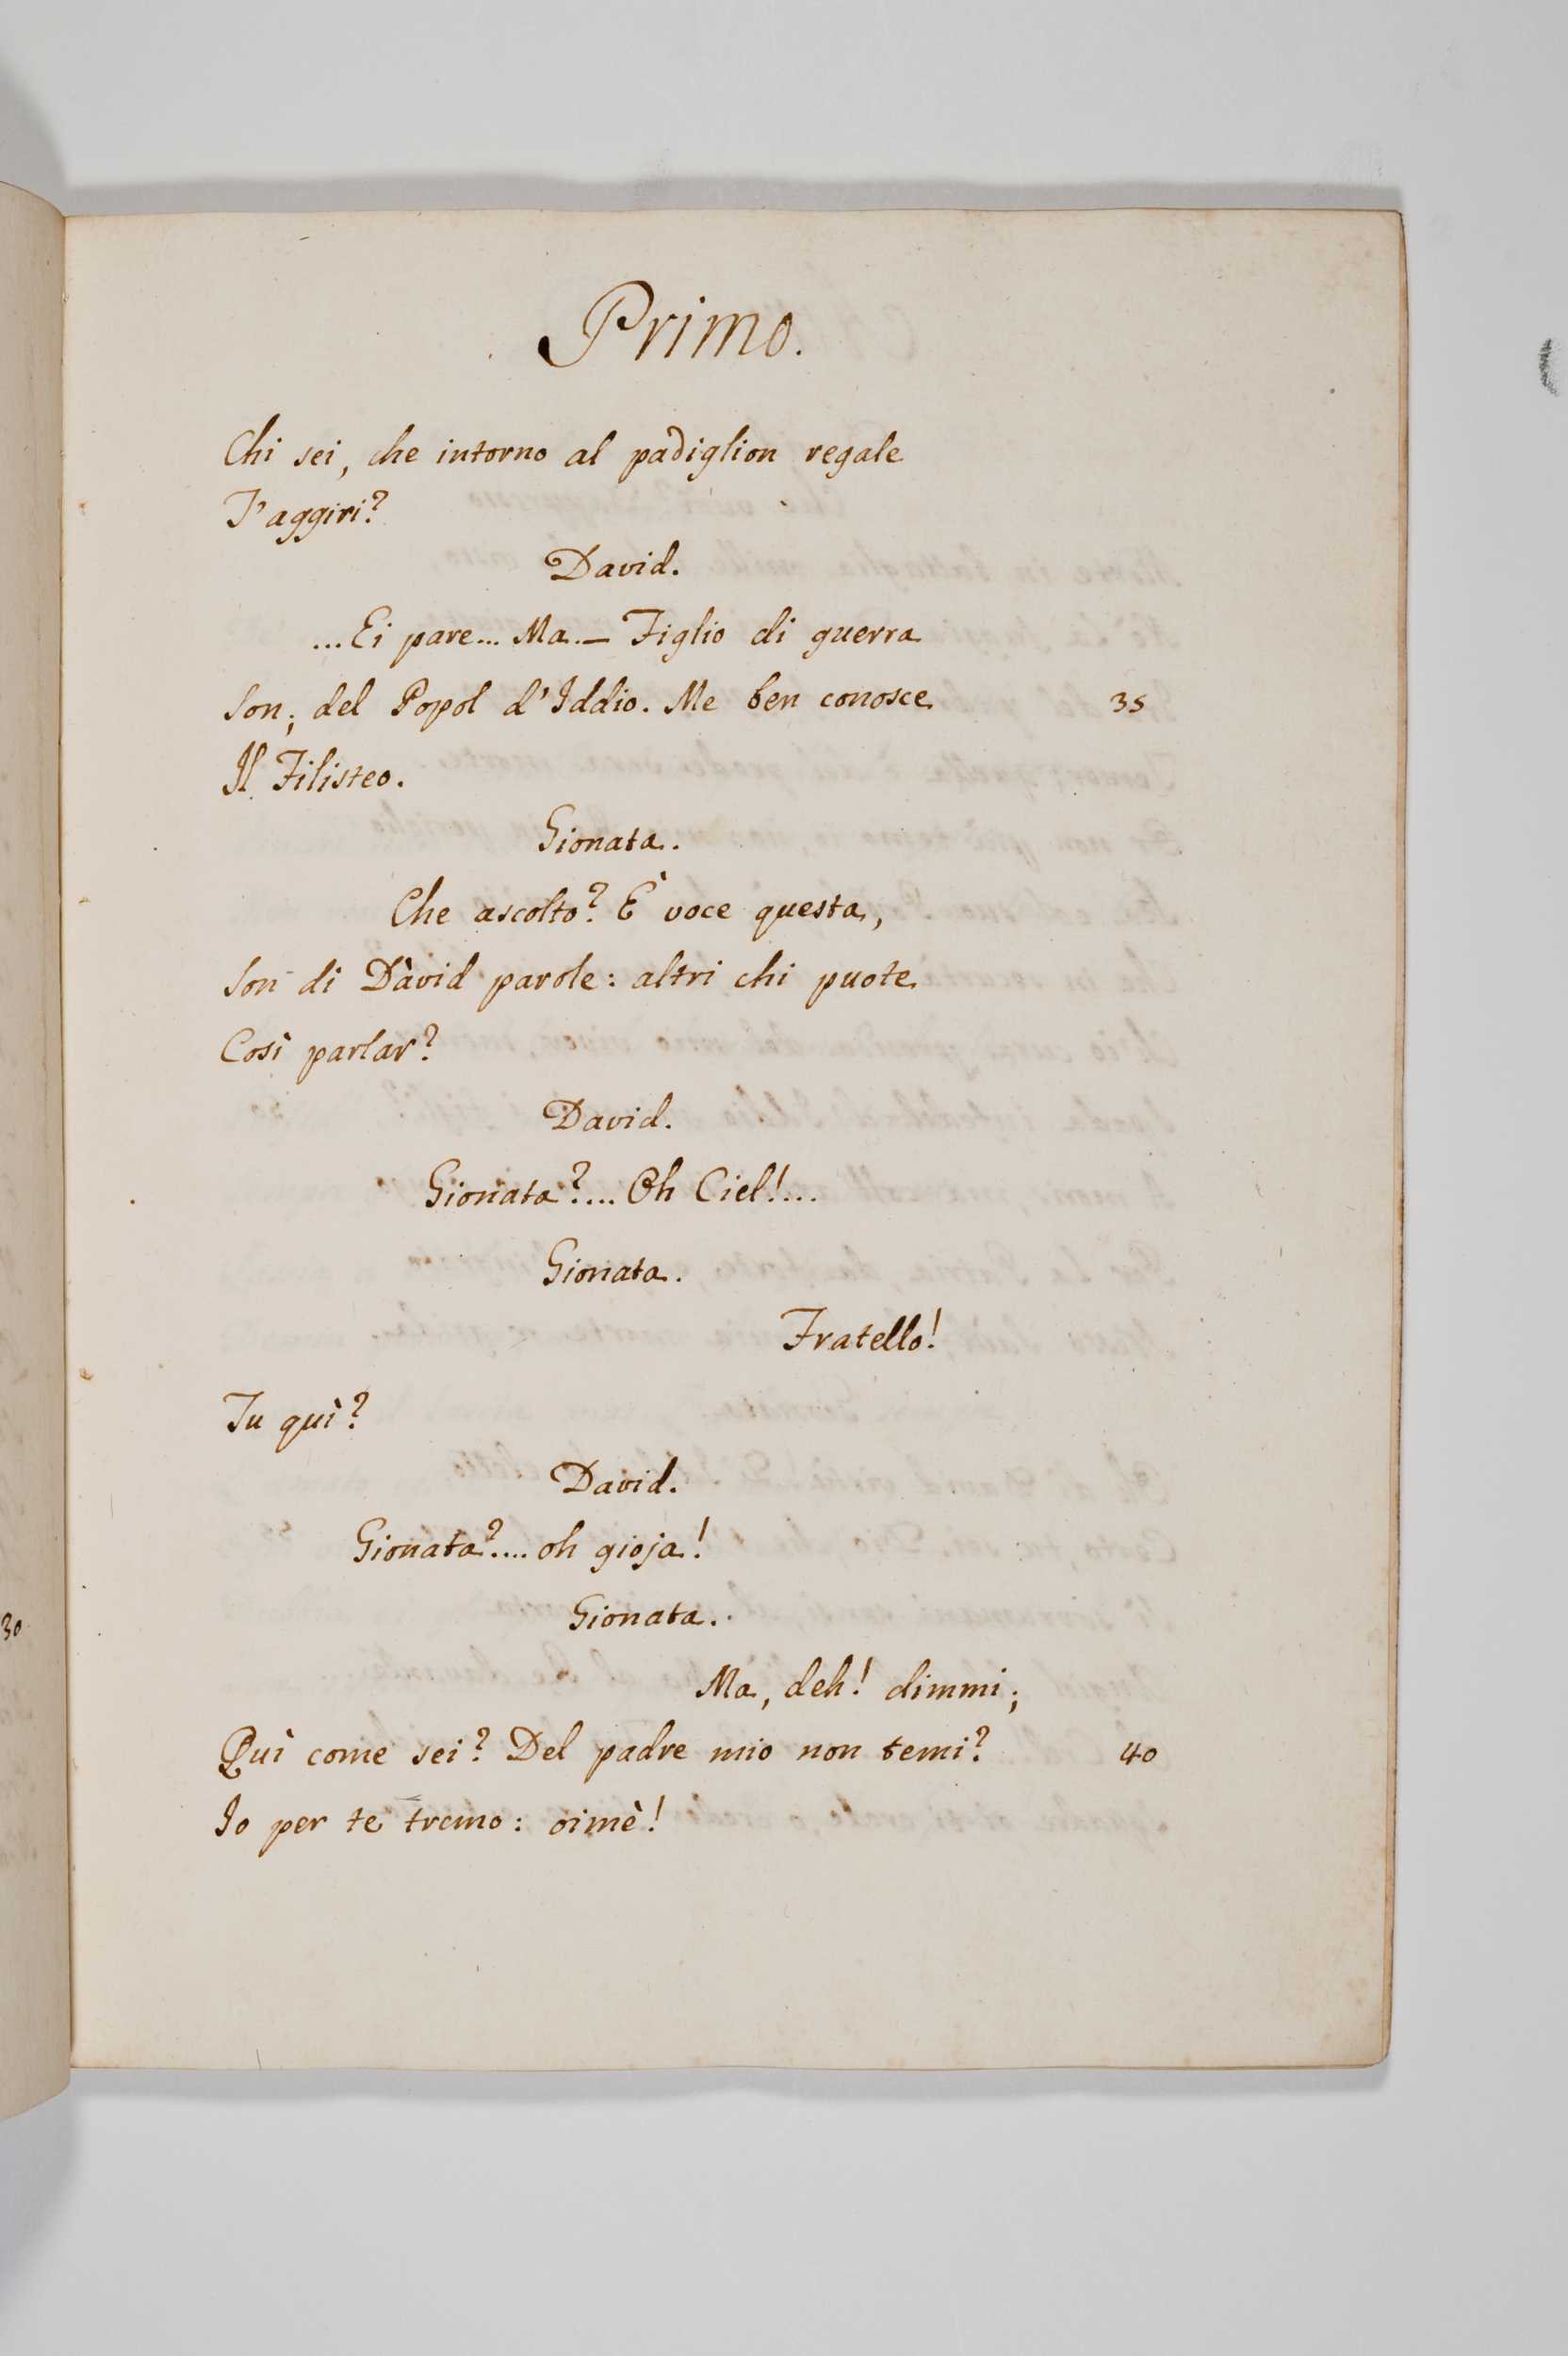 Primo.
Chi sei, che intorno al padiglion regale
T'aggiri?
David.
...Ei pare... Ma.._ Figlio di guerra
Son; del Popol d'Iddio. Me ben conosce 35
Il Filisteo.
Gionata.
Che ascolto? È voce questa,
Son di Dàvid parole: altri chi puote
Così parlar?
David.
Gionata?.... Oh Ciel!...
Gionata.
Fratello!
Tu quì?
David.
Gionata?.... oh gioja!
Gionata.
Ma, deh! dimmi;
30
Quì come sei? Del padre mio non temi? 40
Io per te tremo: oimè!